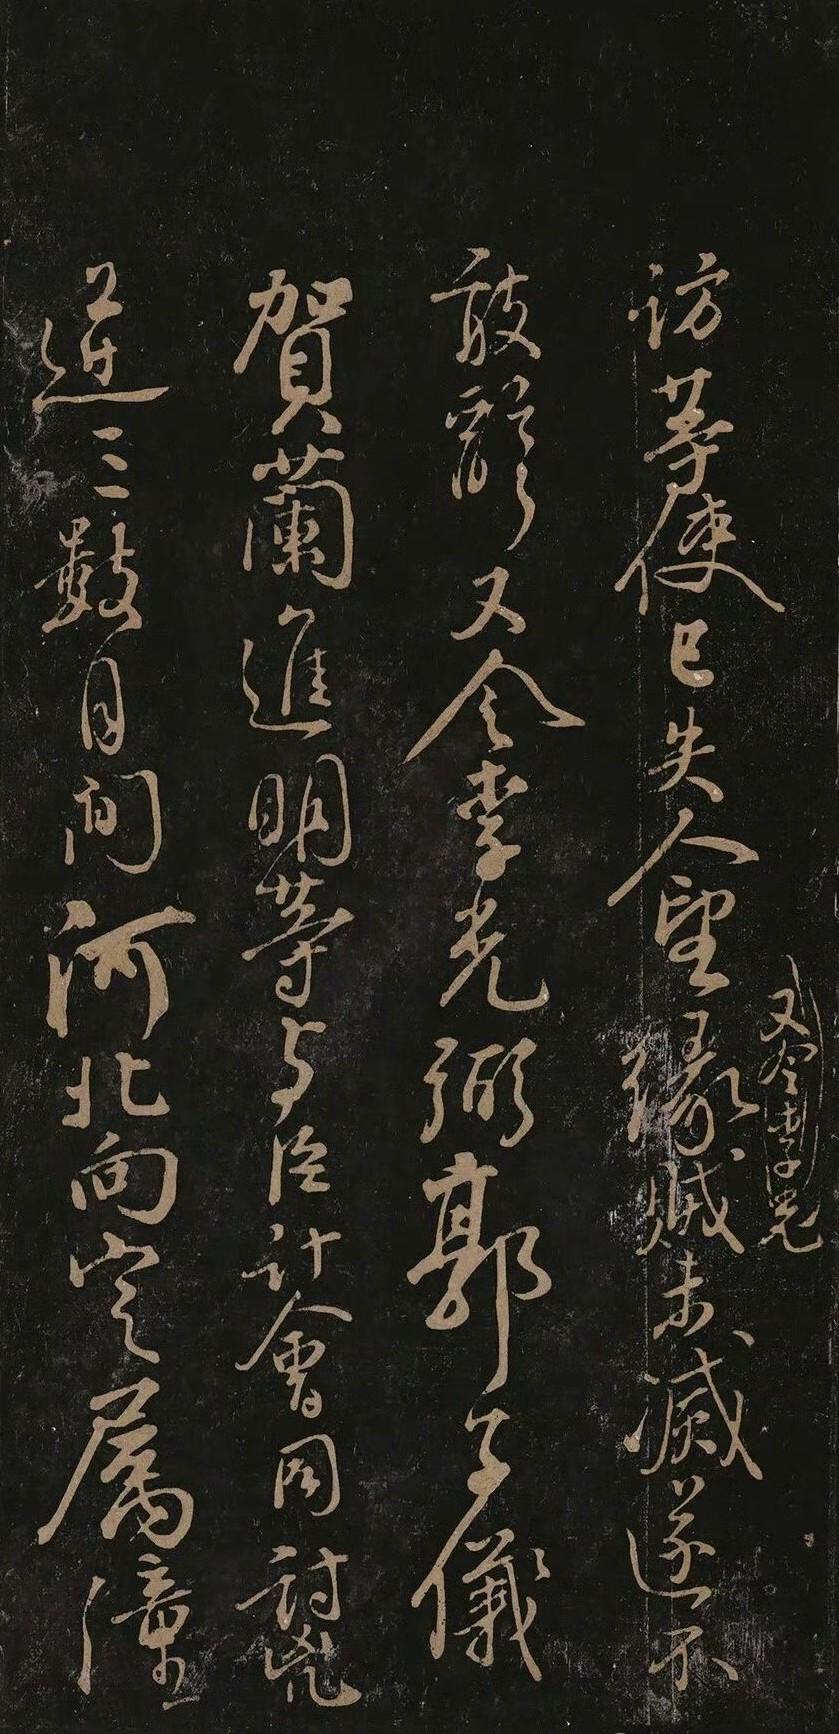 又令李光
訪等使已失人望緣賊未滅遂不
敢辭又令李光弼郭子儀
賀蘭進明等与臣計會同討凶
逆三數月間河北向定屬潼